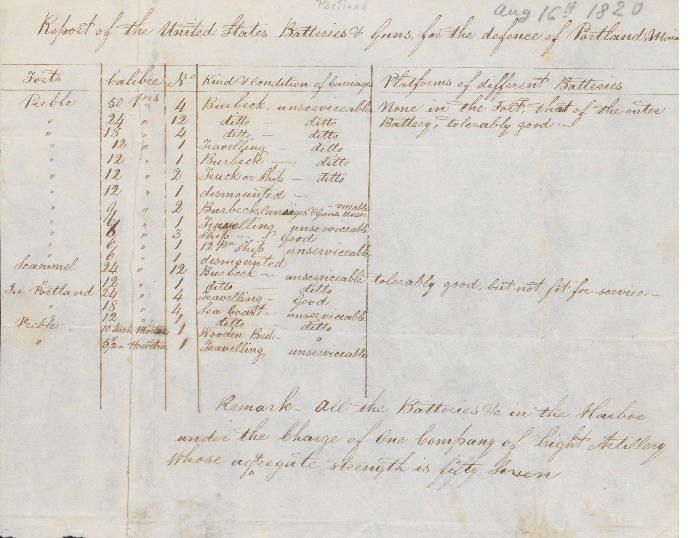 Portland
Aug 16th 1820
Report of the United States Batteries & Guns, for the defence of Portland, Main
Forts Calibre No Kind & Condition of Carriages Platforms of different Batteries
Preble 50 Pdrs 4 Burbeck unserviceable None in the Fort, that of the outer
" 24 " 12 ditto - ditto Battery, tolerably good -
" 18 " 4 ditto - ditto
" 12 " 1 Travelling - ditto
" 12 " 1 Burbeck - ditto
" 12 " 2 Truck or Ship - ditto
" 12 " 1 dismounted -
" 9 " 2 Burbeck, carriages & Guns unserviceable
" 1 Travelling unserviceable
" 3 Ship - good
" 6 " 1 12 Pdr Ship unserviceable
" 6 " 1 dismounted
Scammel 24 " 12 Burbeck - unserviceable tolerably good, but not fit for service -
" 12 " 1 ditto - ditto
In Portland 24 " 4 Travelling - good
" 18 " 4 Sea Coast - unserviceable
12 " 1 ditto ditto
Preble 10 Inch Mortar 1 Wooden Beds - "
" 5½ " Howitzer 1 Travelling unserviceable
Remark - All the Batteries &c in the Harbor
under the Charge of One Company of Light Artillery
Whose aggregate strength is fifty Seven